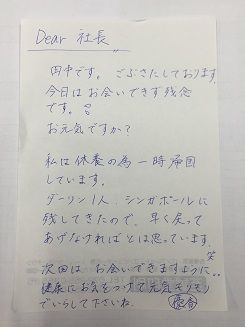 Dear 社長
田中です。ごぶさたしております。
今日はお会いできず残念
です。
お元気ですか?
私は休養の為一時帰国
しています。
ダーリン1人、シンガポールに
残してきたので、早く戻って
あげなければとは思っています。笑
次回は、お会いできますように..
健康にお気をつけて元気モリモリ
でいらして下さいね。